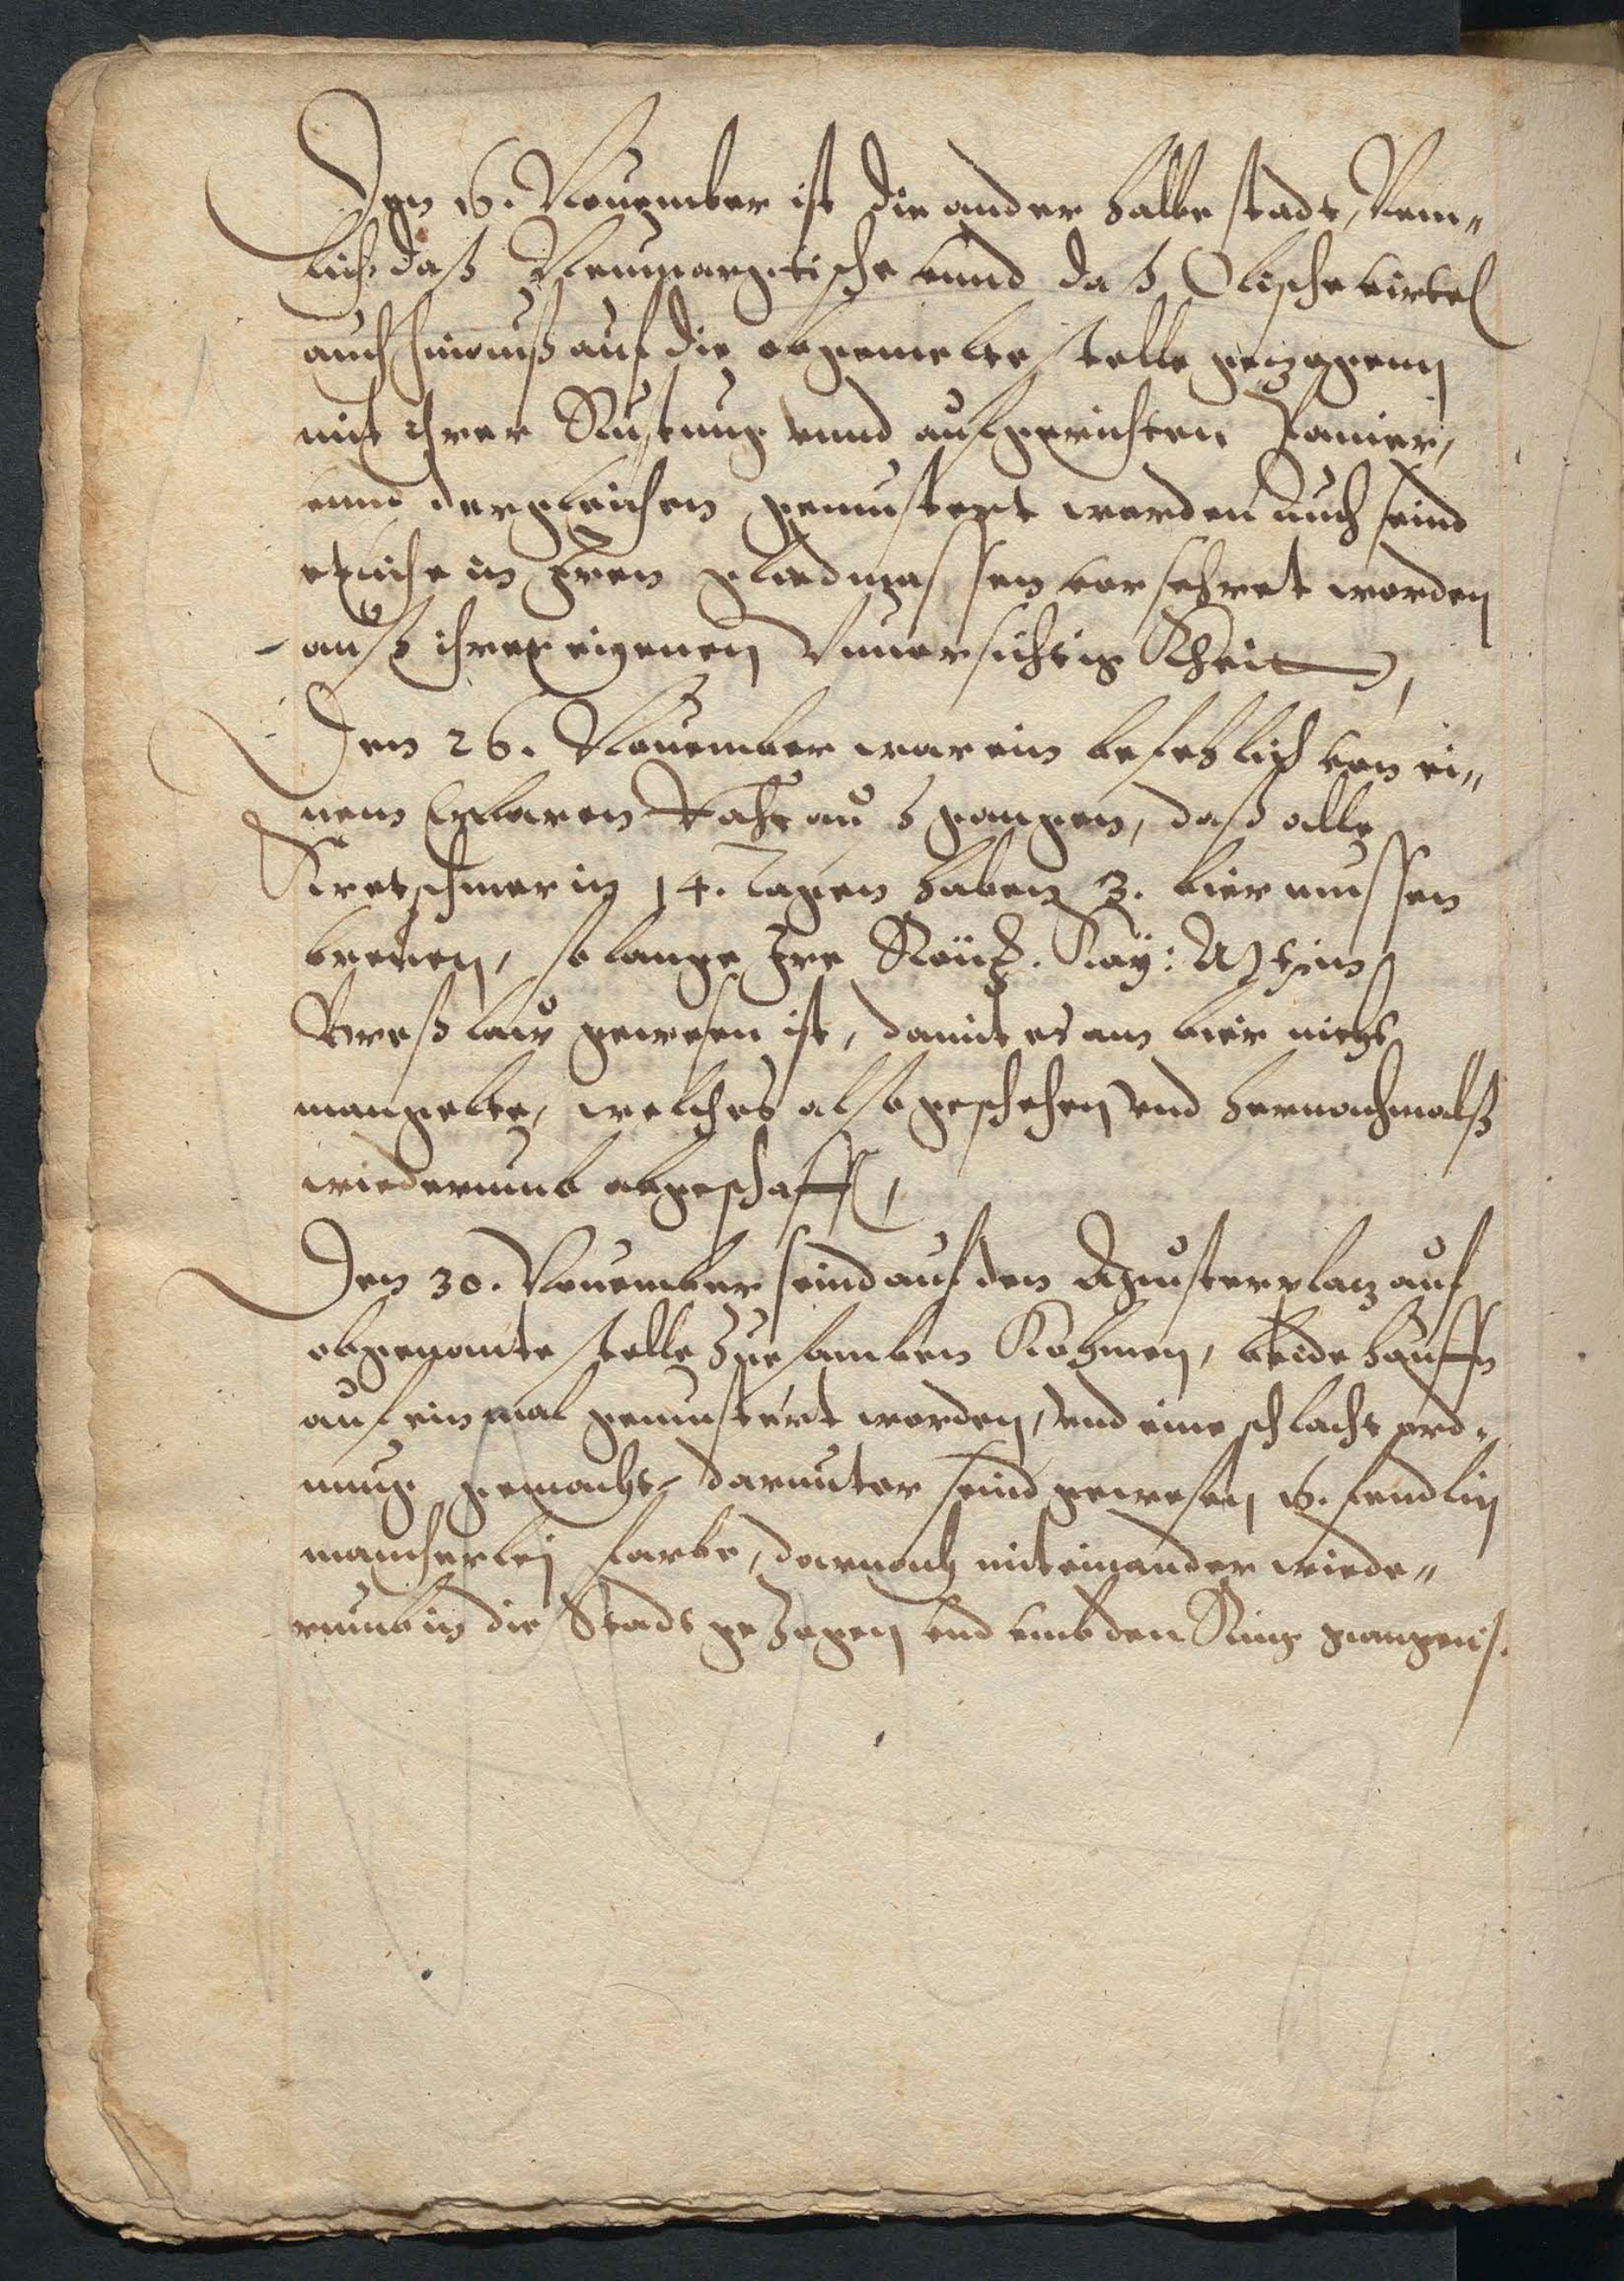 Den 16. Nouember ist die ander halbe stadt, Nem„
lich daß Neumargtische vnnd daß Olische virtel
auch hinauß auf die obgemelte stelle gezogenn
mit ihrer Rustung vnnd aufgerichten Panier,
vnnd dergleichen gemustert worden auch seind
etliche in Iren gliedmassen vorsehret worden
auß ihrer eigenen Vnuorsichtig Kheit,
Den 26. Nouember war ein befehlich von ei„
nem Erbaren Raht außgangen, daß alle
Kretschmer in 14. tagen haben 3. bier mussen
breuen, so lange Ire Röm: Kay: Mt: in
Breßlaw gewesen ist, damit es am bier nicht
mangelte, welches also geschehen vnd hernachmalß
wiederumb abgeschafft,
Den 30. Nouember seind auf den Musterplatz auf
obgenante stelle zuesamben Kohmen, beide hauffn
auf ein mal gemustert worden, vnd eine schlacht ord„
nung gemacht, darunter seind gewesen 16. fendlin
mancherlej farbe, darnach miteinander wiede„
rumb in die Stadt gezogen vnd vmb den Ring gangen.